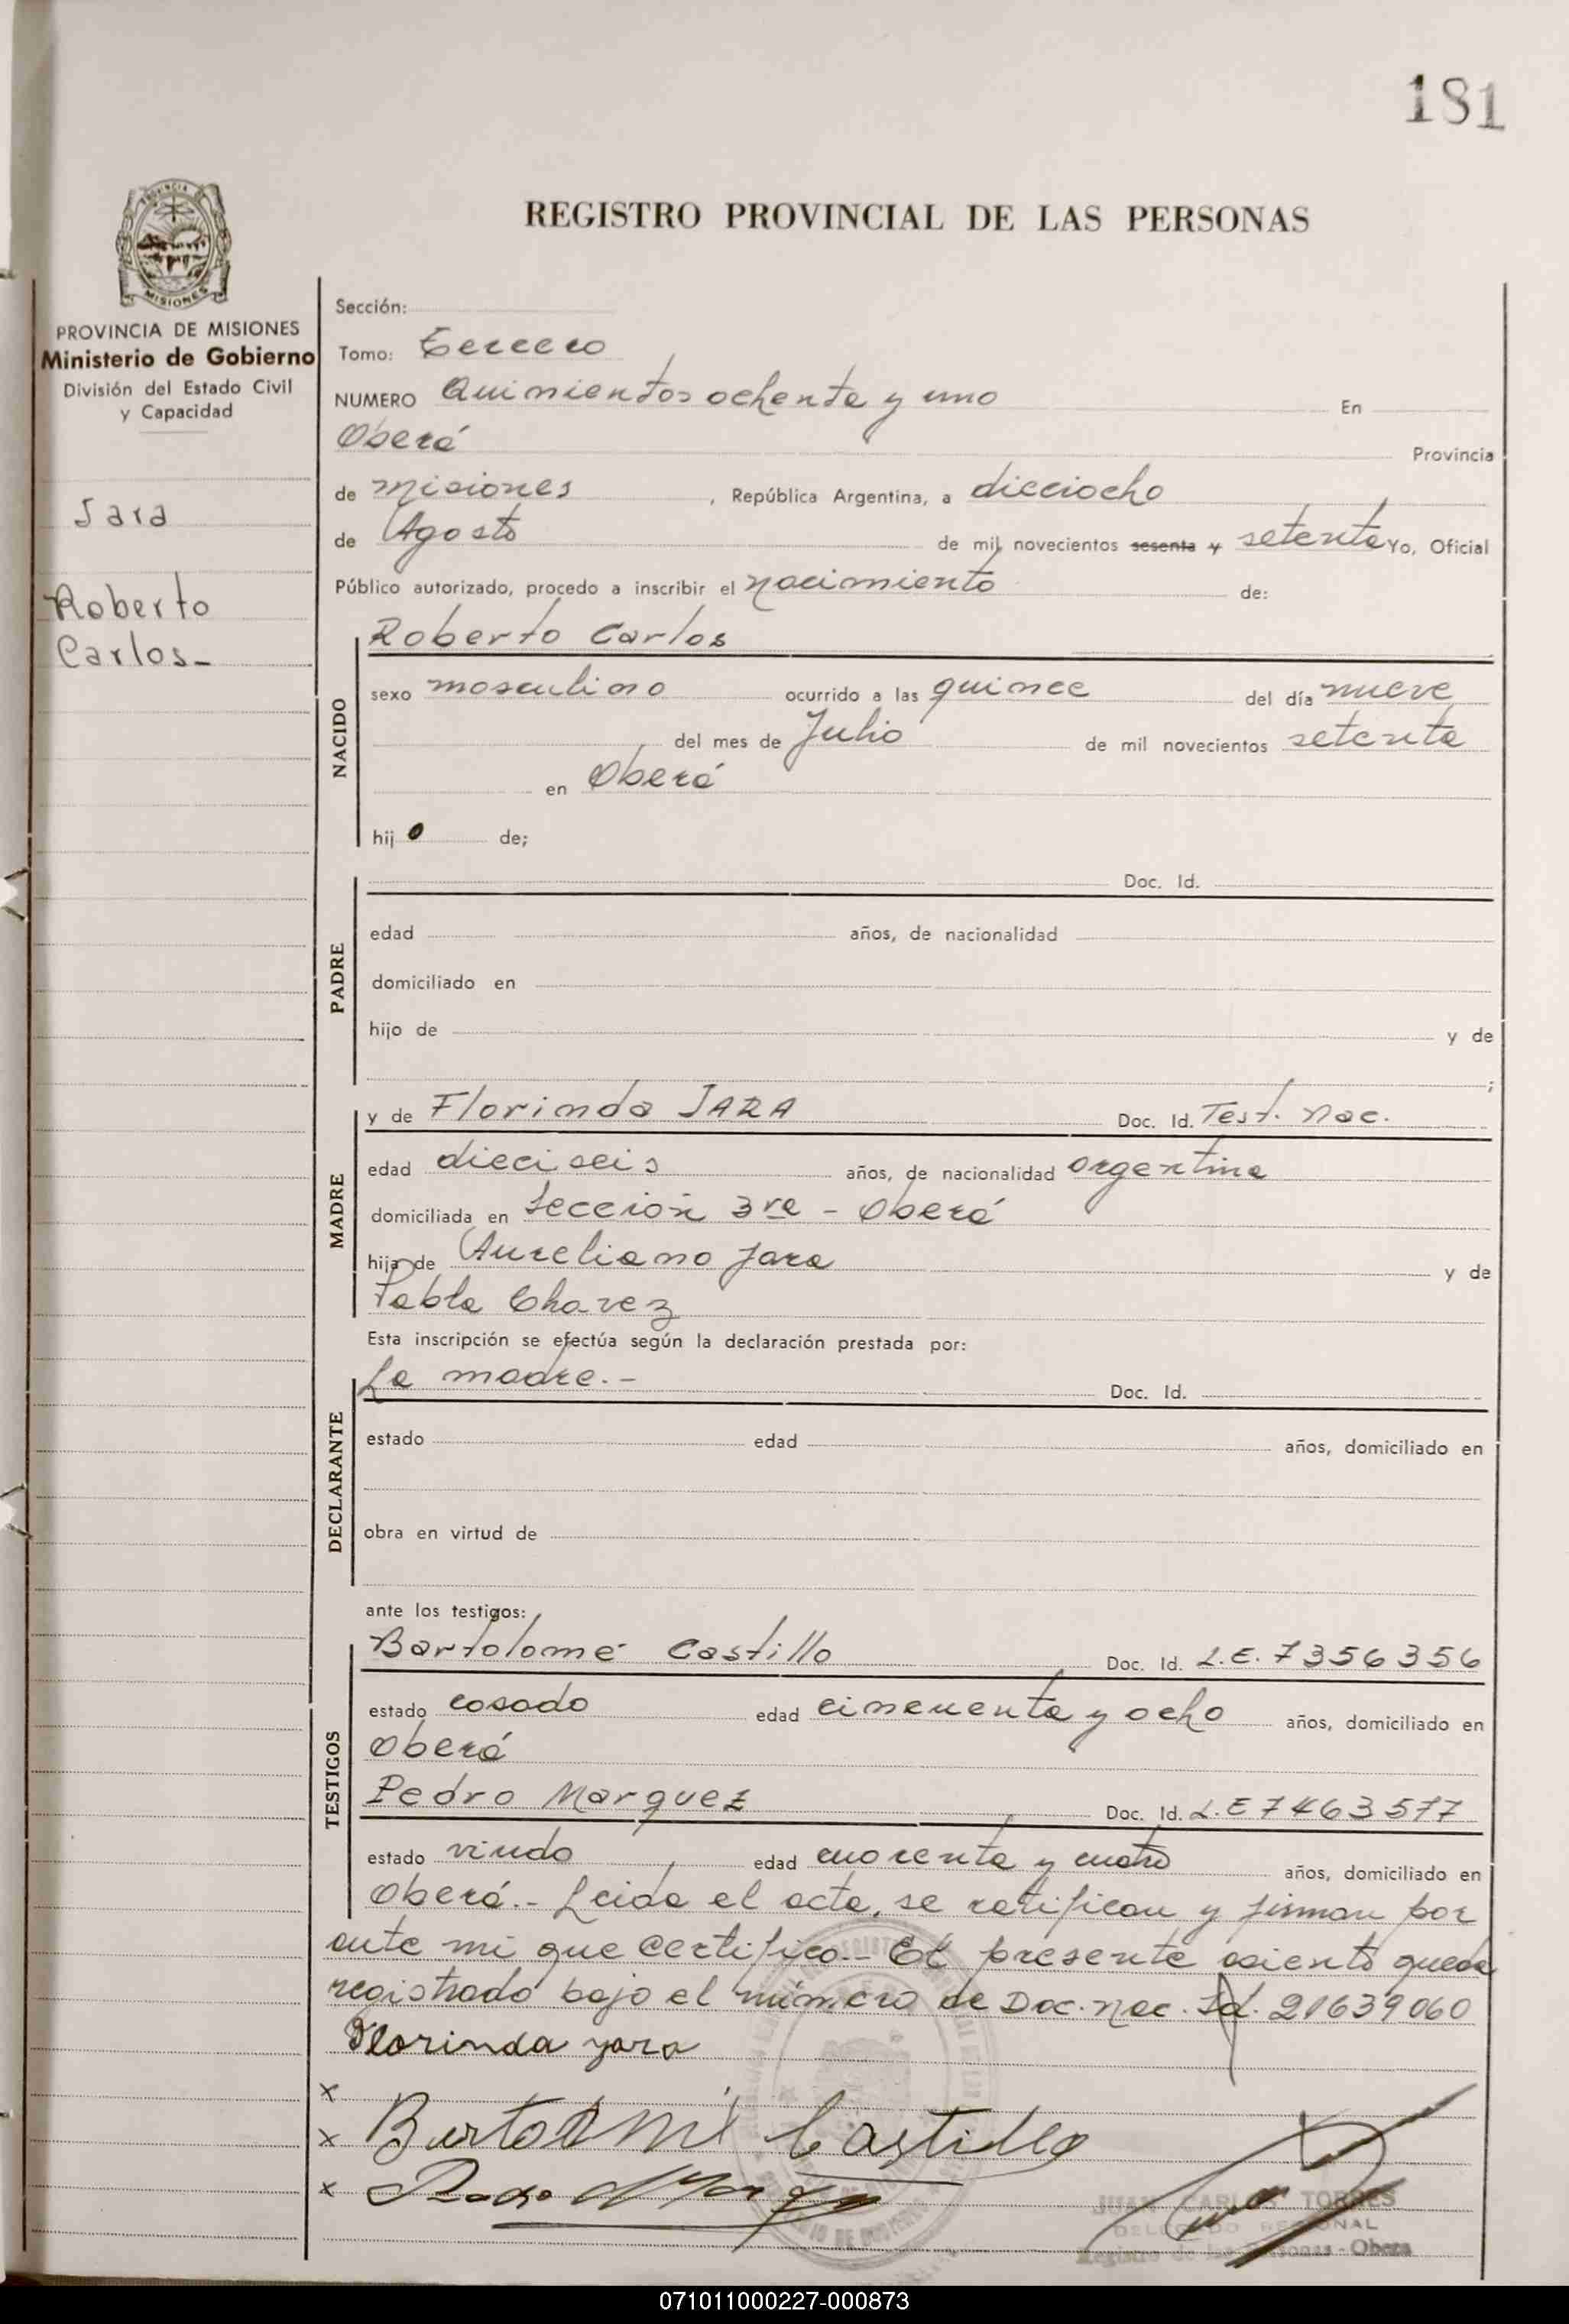 181
REGISTRO PROVINCIAL DE LAS PERSONAS
MISIONES
PROVINCIA DE MISIONES
Ministerio de Gobierno
División del Estado Civil
y Capacidad
Jara
Roberto
Carlos-
Sección:
Tomo: Tercero
NUMERO Quinientos ochenta y uno En
Oberá Provincia
de Misiones , República Argentina, a dieciocho
de Agosto de mil novecientos sesenta y setenta Yo, Oficial
Público autorizado, procedo a inscribir el nacimiento de:
NACIDO
Roberto Carlos
sexo masculino ocurrido a las quince del día nueve
del mes de Julio de mil novecientos setenta
en Oberá
hijo de;
PADRE
Doc. Id.
edad años, de nacionalidad
domiciliado en
hijo de y de
;
MADRE
y de Florinda JARA Doc. Id. Test. Nac.
edad dieciseis años, de nacionalidad argentina
domiciliada en Sección 3ra - Oberá
hija de Aureliano Jara y de
Pabla Chavez
Esta inscripción se efectúa según la declaración prestada por:
DECLARANTE
La madre.- Doc. Id.
estado edad años, domiciliado en
obra en virtud de
ante los testigos:
TESTIGOS
Bartolomé Castillo Doc. Id. L.E. 7356356
estado casado edad cincuenta y ocho años, domiciliado en
Oberá
Pedro Marquez Doc. Id. L.E 7463577
estado viudo edad cuarenta y cuatro años, domiciliado en
Oberá.- Leida el acta, se ratifican y firman por
ante mi que certifico.- El presente asiento queda
registrado bajo el número de Doc. Nac. Id. 21639060
Florinda Jara
x
x Bartolomé Castillo
x Pedro Marquez
JUAN CARLOS TORRES
DELEGADO REGIONAL
Registro de las Personas - Obera
071011000227-000873